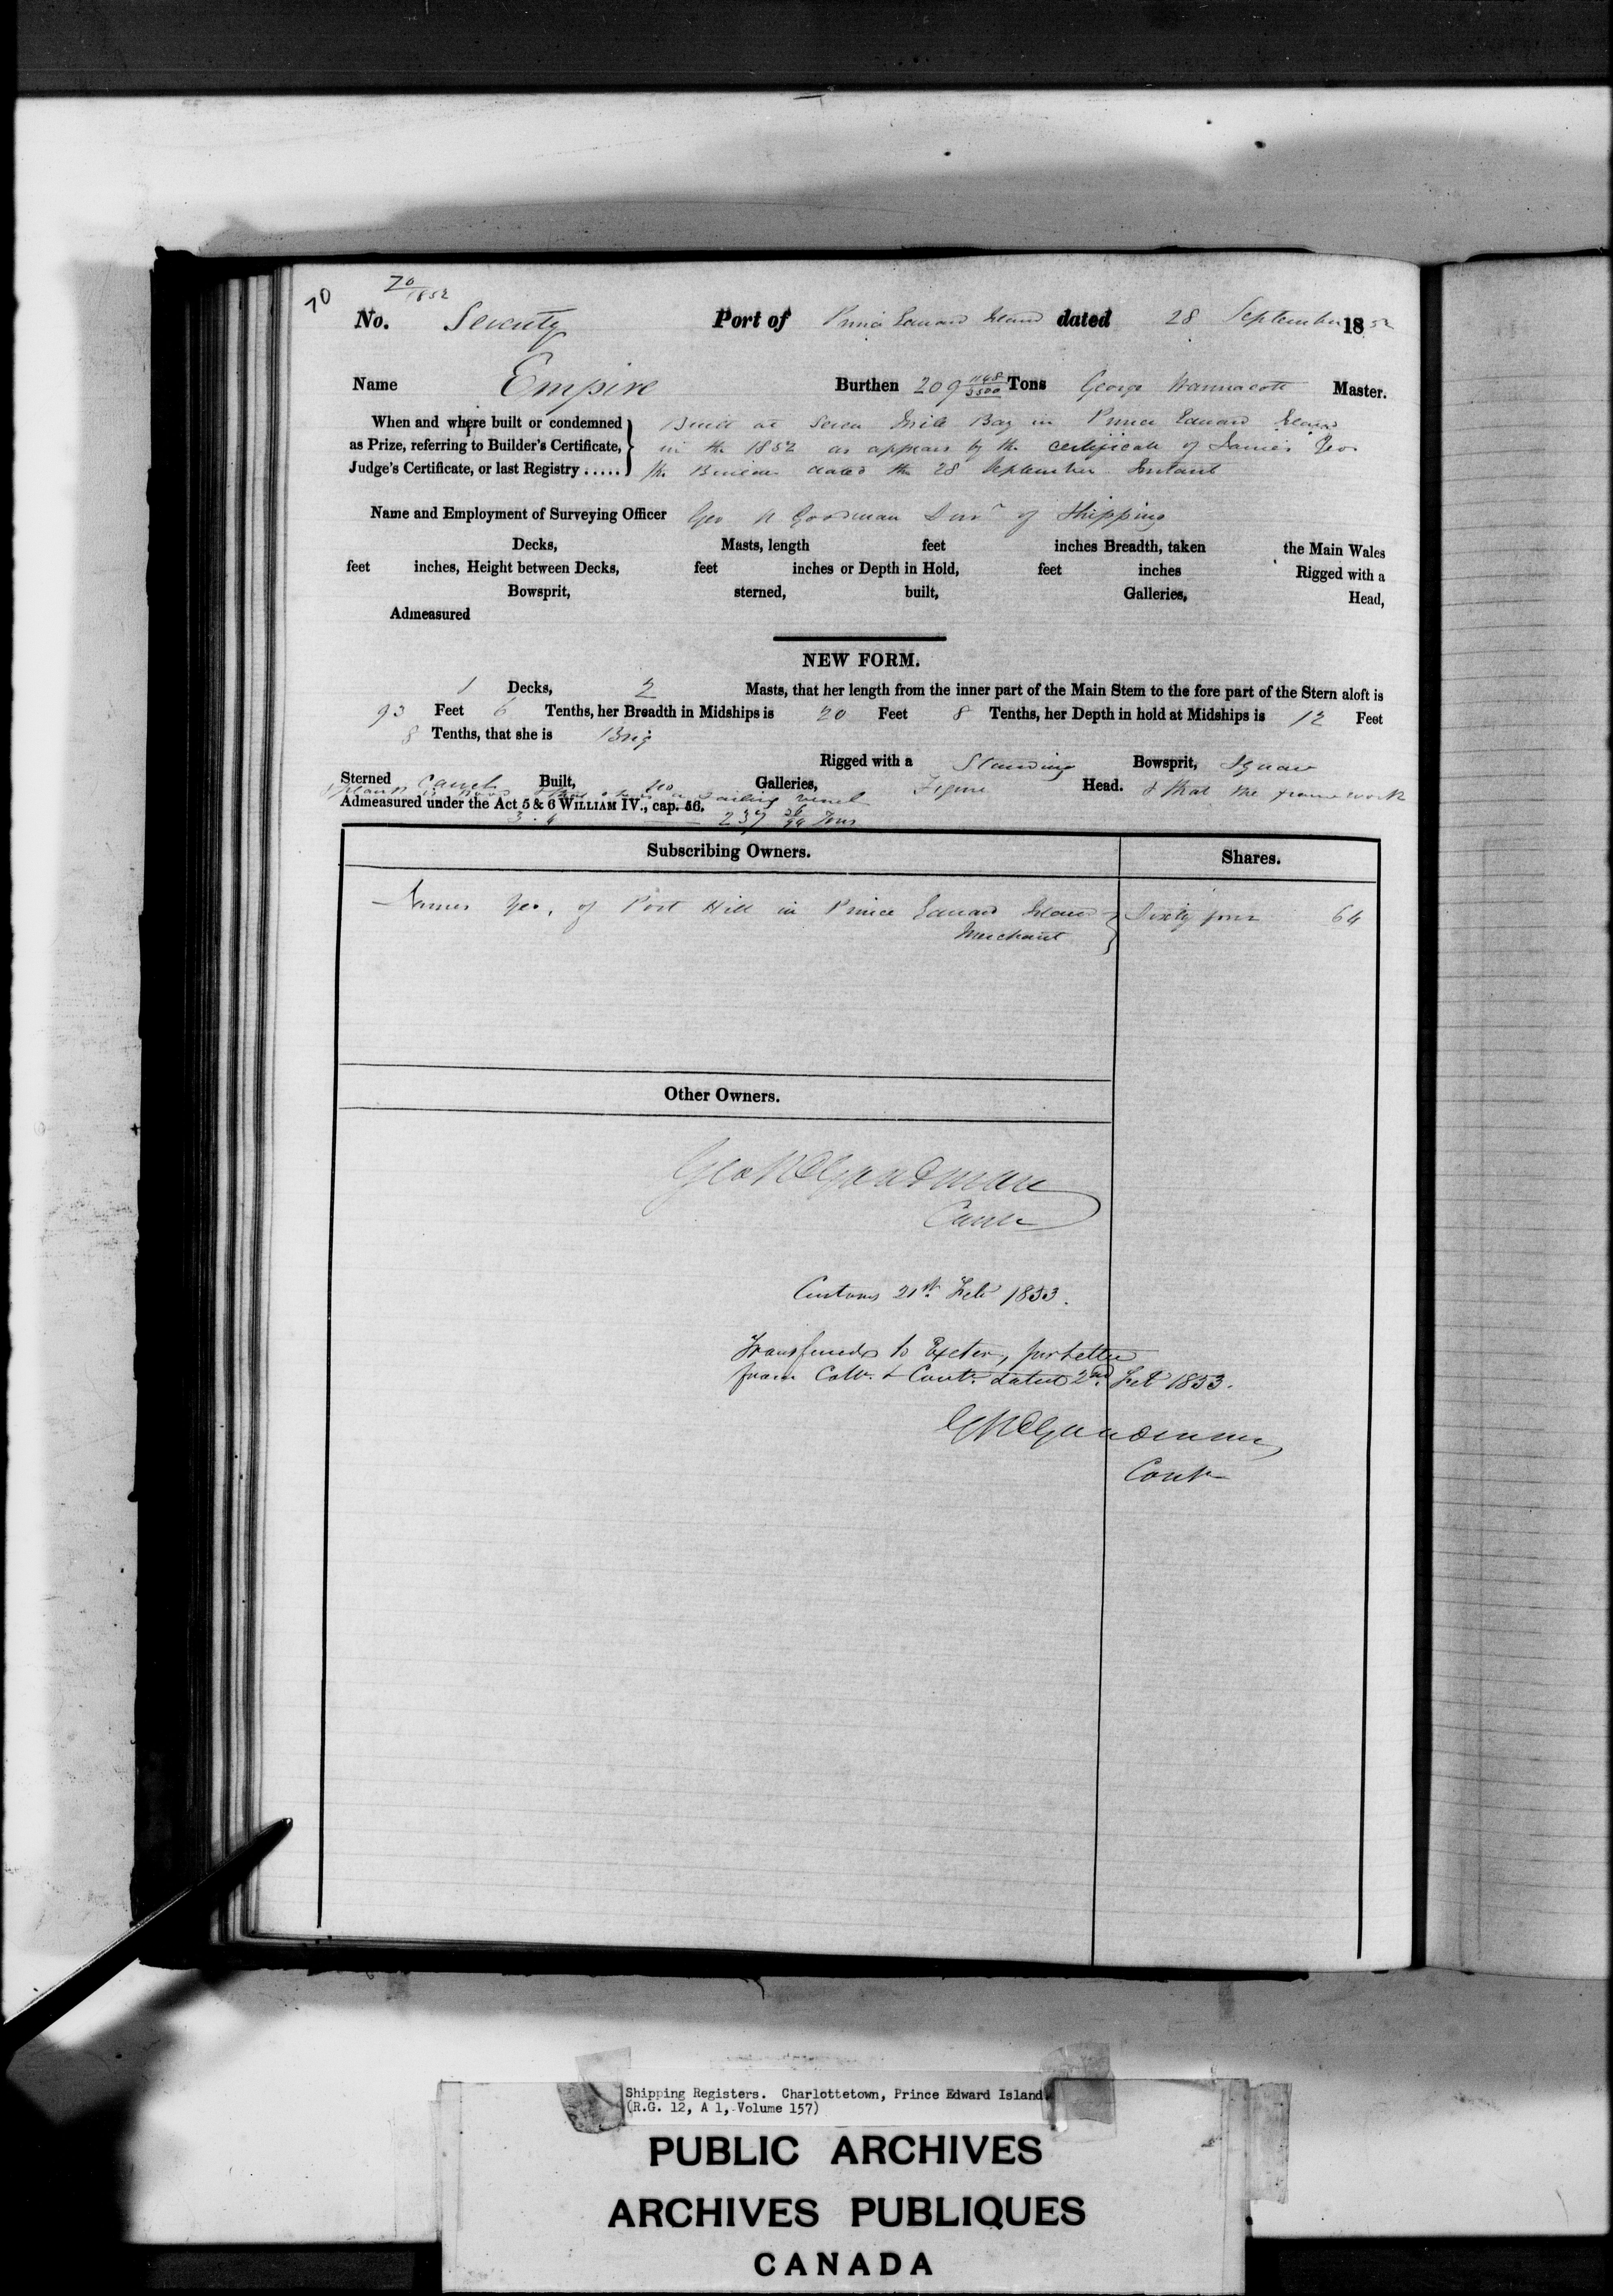 70
70/1852
No. Seventy Port of Prince Edward Island dated 28 September 1852
Name Empire Burthen 209 1148/3500 Tons George Wannacott Master.
When and where built or condemned as Prize, referring to Builder's Certificate, Judge's Certificate, or last Registry .....
Built at Seven Mile Bay in Prince Edward Island
in the 1852 as appears by the certificate of James Yeo
the Builder dated the 28 September Instant
Name and Employment of Surveying Officer Geo R Goodman Surv^r of Shipping
Decks, Masts, length feet inches Breadth, taken the Main Wales
feet inches, Height between Decks, feet inches or Depth in Hold, feet inches Rigged with a
Bowsprit, sterned, built, Galleries, Head,
Admeasured
NEW FORM.
1 Decks, 2 Masts, that her length from the inner part of the Main Stem to the fore part of the Stern aloft is
93 Feet 6 Tenths, her Breadth in Midships is 20 Feet 8 Tenths, her Depth in hold at Midships is 12 Feet
8 Tenths, that she is Brig
Rigged with a Standing Bowsprit, Square
Sterned Carvel Built, No Galleries, Figure Head. & that the framework
& plank is wood & that she is a sailing vessel
Admeasured under the Act 5 & 6 WILLIAM IV., cap. 56.
3. 4 237 Tons
Subscribing Owners. Shares.
James Yeo, of Port Hill in Prince Edward Island Sixty four 64
Merchant
Other Owners.
Geo R Goodman
Contr
Customs 21st Feb 1853.
Transferred to Exeter, per letter
from Collr. & Contr. dated 2nd Feb 1853.
G R Goodman
Contr
Shipping Registers. Charlottetown, Prince Edward Island
(R.G. 12, A 1, Volume 157)
PUBLIC ARCHIVES
ARCHIVES PUBLIQUES
CANADA